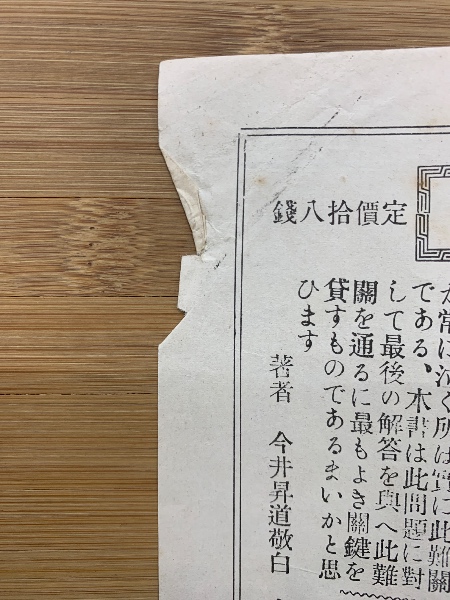 定價拾八錢
が常に泣く所は實に此難關
である、本書は此問題に對
して最後の解答を與へ此難
關を通るに最もよき關鍵を
貸すものであるまいかと思
ひます
著者 今井昇道敬白